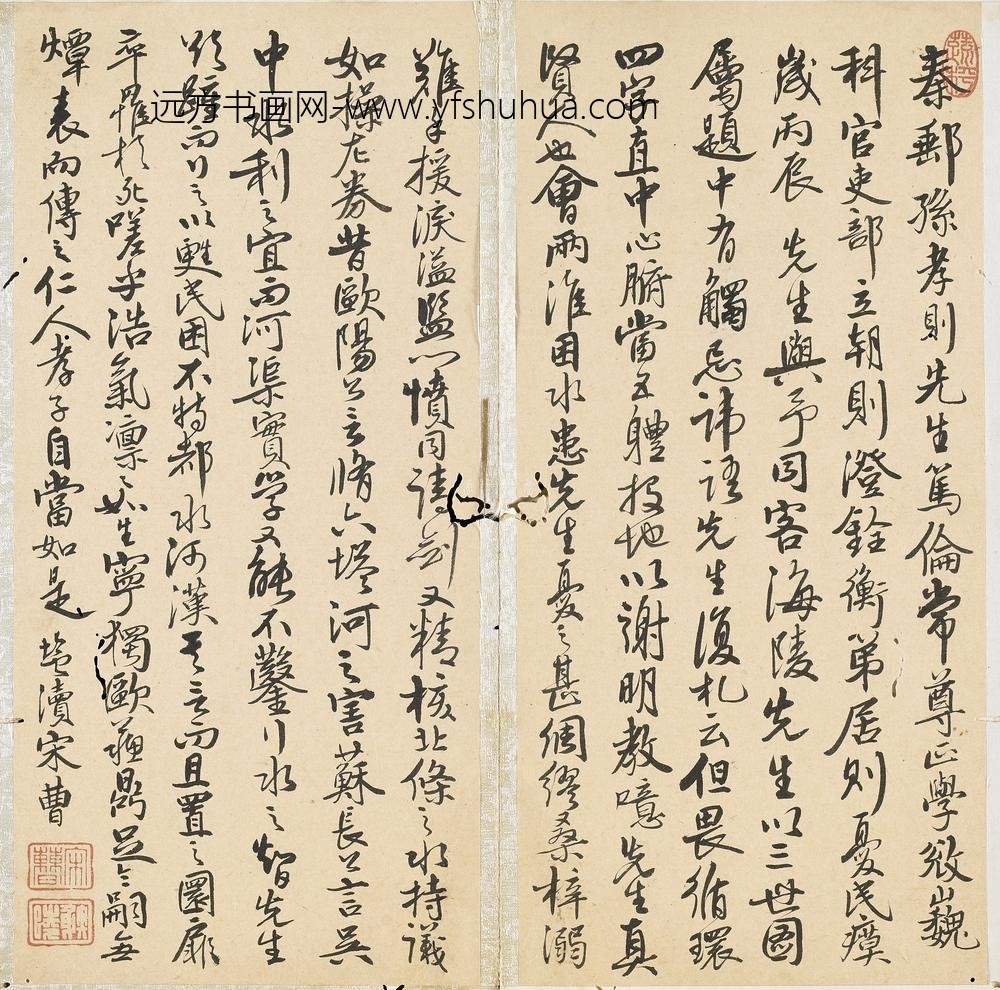 秦郵孫孝則先生篤倫常尊正學攽巍巍
科官吏部立朝則澄銓衡第居則憂民瘼
歲丙辰先生與予同客海陵先生以三世圖
屬題中有觸忌諱語先生復札云但畏循環
四字直中心腑當五體投地以謝明教噫先生真
賢人也會兩淮困水患先生憂之甚綢繆桑梓溺
難手援淚溢監門憤同請劍又精核北條之水持議
如操左券昔歐陽公言脩六塔河之害蘇長公言吳
中水利之宜而河渠實學又能不鑿行水之智先生
欲踵而行之以甦民困不特都水河漢其言而且置之圜扉
卒罹於死嗟乎浩氣凛凛如生寧獨歐蘇鼎足令嗣無
燂表而傳之仁人孝子自當如是 鹽瀆宋曹
远方书画网-www.yfshuhua.com
宋曹